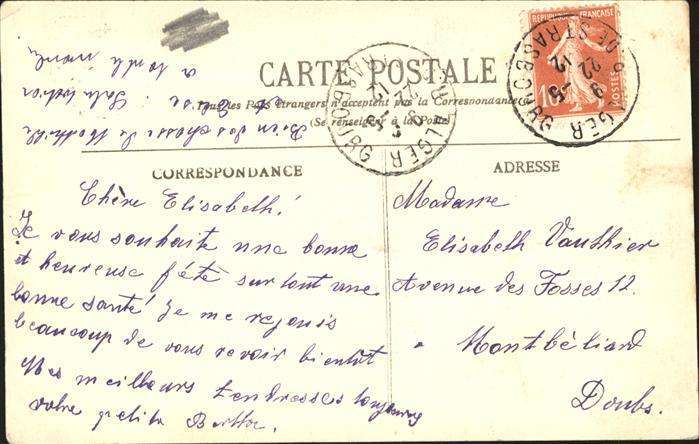 CARTE POSTALE
Tous les Pays étrangers n'acceptent pas la Correspondance
(Se renseigner à la Poste)
CORRESPONDANCE
ADRESSE
Chère Elisabeth!
Je vous souhaite une bonne
et heureuse fête surtout une
bonne santé je me rejouis
beaucoup de vous revoir bientôt
Mes meilleurs tendresses toujours
votre petite Berthe.
Madame
Elisabeth Vauthier
Avenue des Fosses 12.
Montbéliard
Doubs.
Bien des choses de Mathilde
a tout le monde
REPUBLIQUE FRANÇAISE
POSTES
10
ALGER
STRASBOURG
22
12
ALGER
STRASBOURG